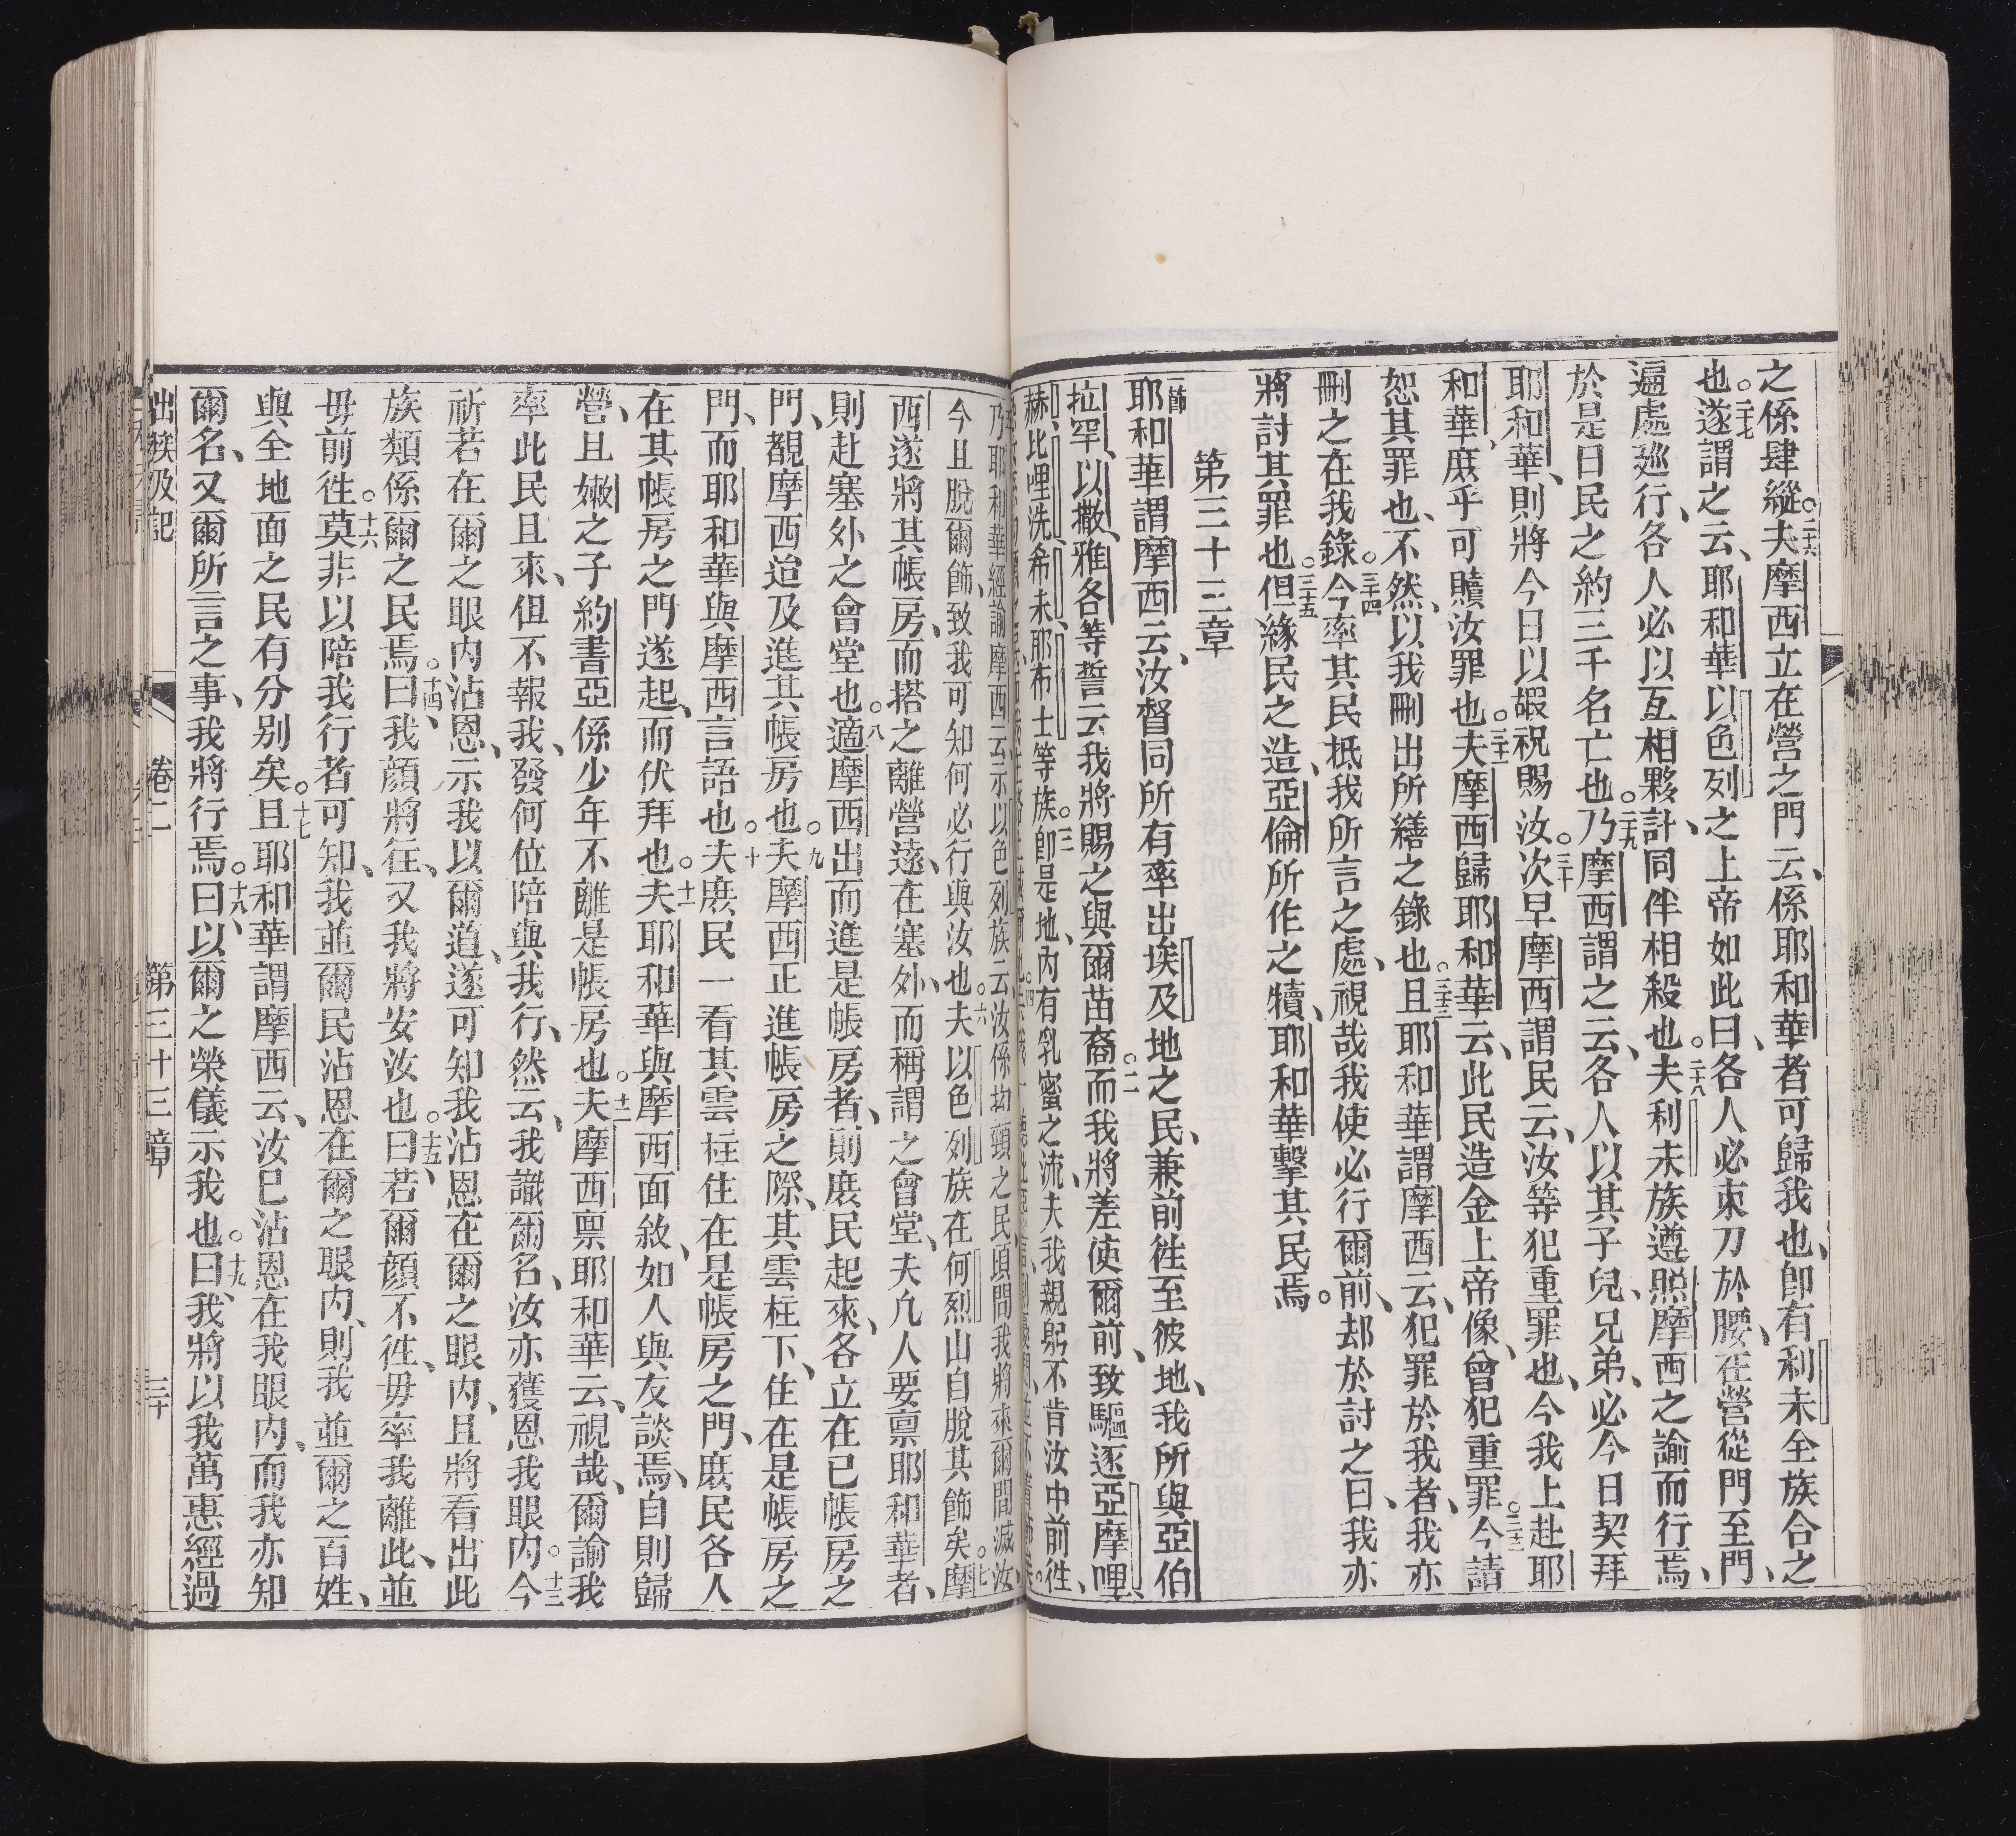 之係肆縱。二十六夫摩西立在營之門云、係耶和華者可歸我也、卽有利未全族合之
也。二十七遂謂之云、耶和華以色列之上帝如此曰、各人必束刀於腰、在營從門至門、
遍處廵行、各人必以互相夥計、同伴相殺也。二十八夫利未族遵照摩西之諭而行焉、
於是日民之約三千名亡也。二十九乃摩西謂之云、各人以其子兒、兄弟、必今日契拜
耶和華、則將今日以嘏祝賜汝。三十次早摩西謂民云、汝等犯重罪也、今我上赴耶
和華、庶乎可贖汝罪也。三十一夫摩西歸耶和華云、此民造金上帝像、曾犯重罪。三十二今請
恕其罪也、不然、以我刪出所繕之錄也。三十三且耶和華謂摩西云、犯罪於我者、我亦
刪之在我錄。三十四今率其民抵我所言之處、視哉我使必行爾前、却於討之日、我亦
將討其罪也。三十五但緣民之造、亞倫所作之犢、耶和華擊其民焉。
第三十三章
一節耶和華謂摩西云、汝督同所有率出埃及地之民、兼前徃至彼地、我所與亞伯
拉罕、以撒、雅各等誓云我將賜之與爾苗裔。二而我將差使爾前、致驅逐亞摩哩、
赫、比哩洗、希未、耶布士等族。三卽是地、內有乳蜜之流、夫我親躬不肯汝中前徃、
乃耶和華經諭摩西云示以色列族云、汝係拗頸之民、頃間我將來爾間滅汝、
今且脫爾飾、致我可知何必行與汝也。六夫以色列族在何烈山自脫其飾矣。七摩
西遂將其帳房、而搭之離營遠、在塞外、而稱謂之會堂、夫凡人要禀耶和華者、
則赴塞外之會堂也。八適摩西出而進是帳房者、則庶民起來、各立在已帳房之
門、觀摩西迨及進其帳房也。九夫摩西正進帳房之際、其雲柱下、住在是帳房之
門、而耶和華與摩西言語也。十夫庶民一看其雲柱住在是帳房之門、庶民各人
在其帳房之門遂起、而伏拜也。十一夫耶和華與摩西面敘、如人與友談焉、自則歸
營、且嫩之子約書亞係少年不離是帳房也。十二夫摩西禀耶和華云、視哉、爾諭我
率此民且來、但不報我、發何位陪與我行、然云、我識爾名、汝亦獲恩我眼內。十三今
祈若在爾之眼內沾恩、示我以爾道、遂可知我沾恩在爾之眼內、且將看出此
族類係爾之民焉。十四曰、我顔將徃、又我將安汝也。十五曰、若爾顔不徃、毋率我離此、並
毋前徃。十六莫非以陪我行者可知、我並爾民沾恩在爾之眼內、則我並爾之百姓、
與全地面之民有分別矣。十七且耶和華謂摩西云、汝已沾恩在我眼內、而我亦知
爾名、又爾所言之事、我將行焉。十八曰、以爾之榮儀示我也。十九曰、我將以我萬惠經過
出麥西及記 卷二 第三十三章 三十